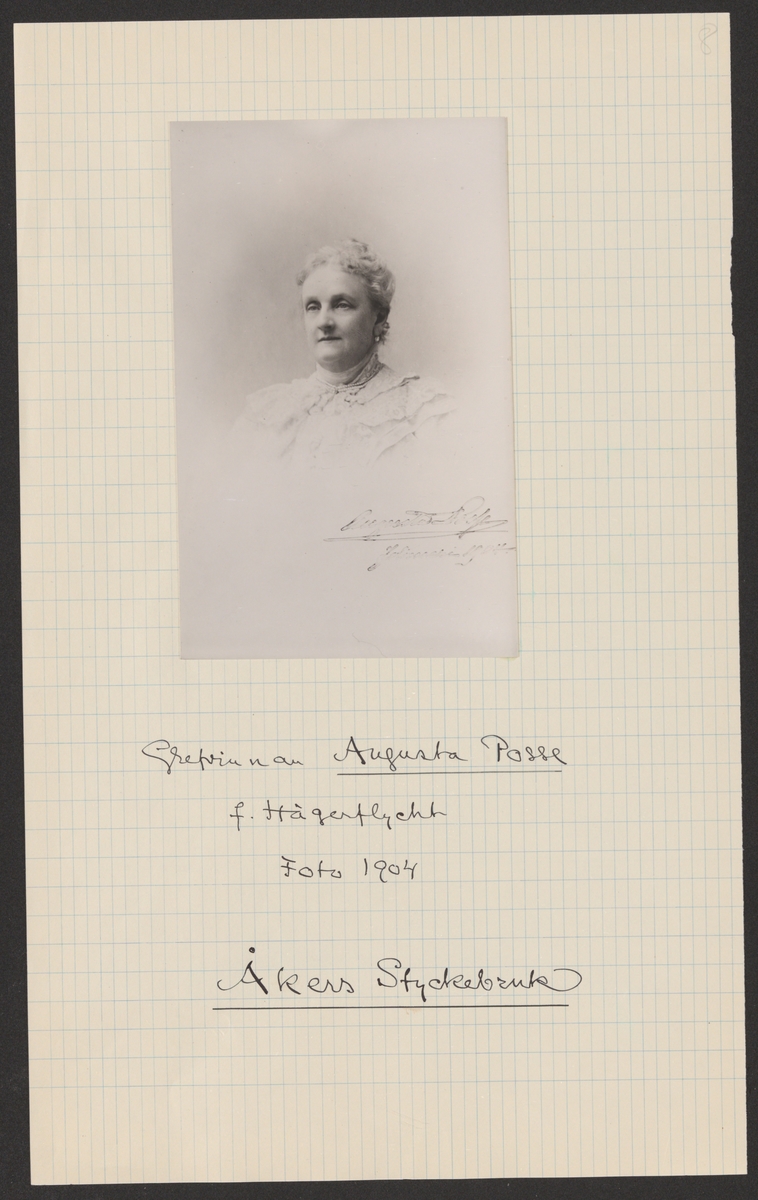 8
Augusta Posse
1904
Grefvinnan Augusta Posse
f. Hägerflycht
Foto 1904
Åkers Styckebruk